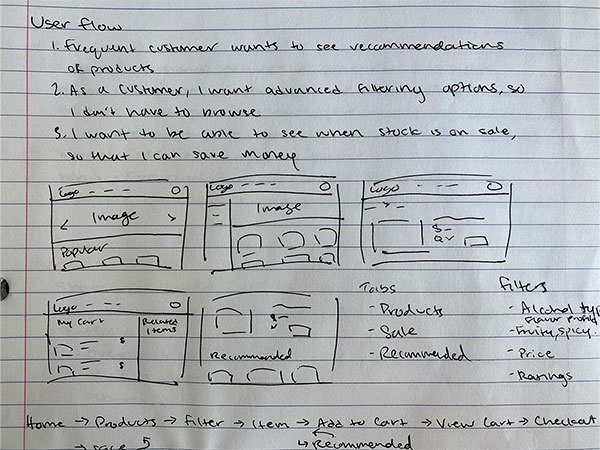 User flow
1. Frequent customer wants to see recommendations
of products
2. As a customer, I want advanced filtering options, so
I don't have to browse
3. I want to be able to see when stock is on sale,
so that I can save money
Logo
Image
Popular
Logo
Image
Logo
$
Q
Logo
My Cart
Related
Items
$
$
$
Recommended
Tabs
- Products
- Sale
- Recommended
Filters
- Alcohol typ
Flavor profile
- Fruity, spicy
- Price
- Ratings
Home → Products → Filter → Item → Add to Cart → View Cart → Checkout
→ Sale
↳ Recommended